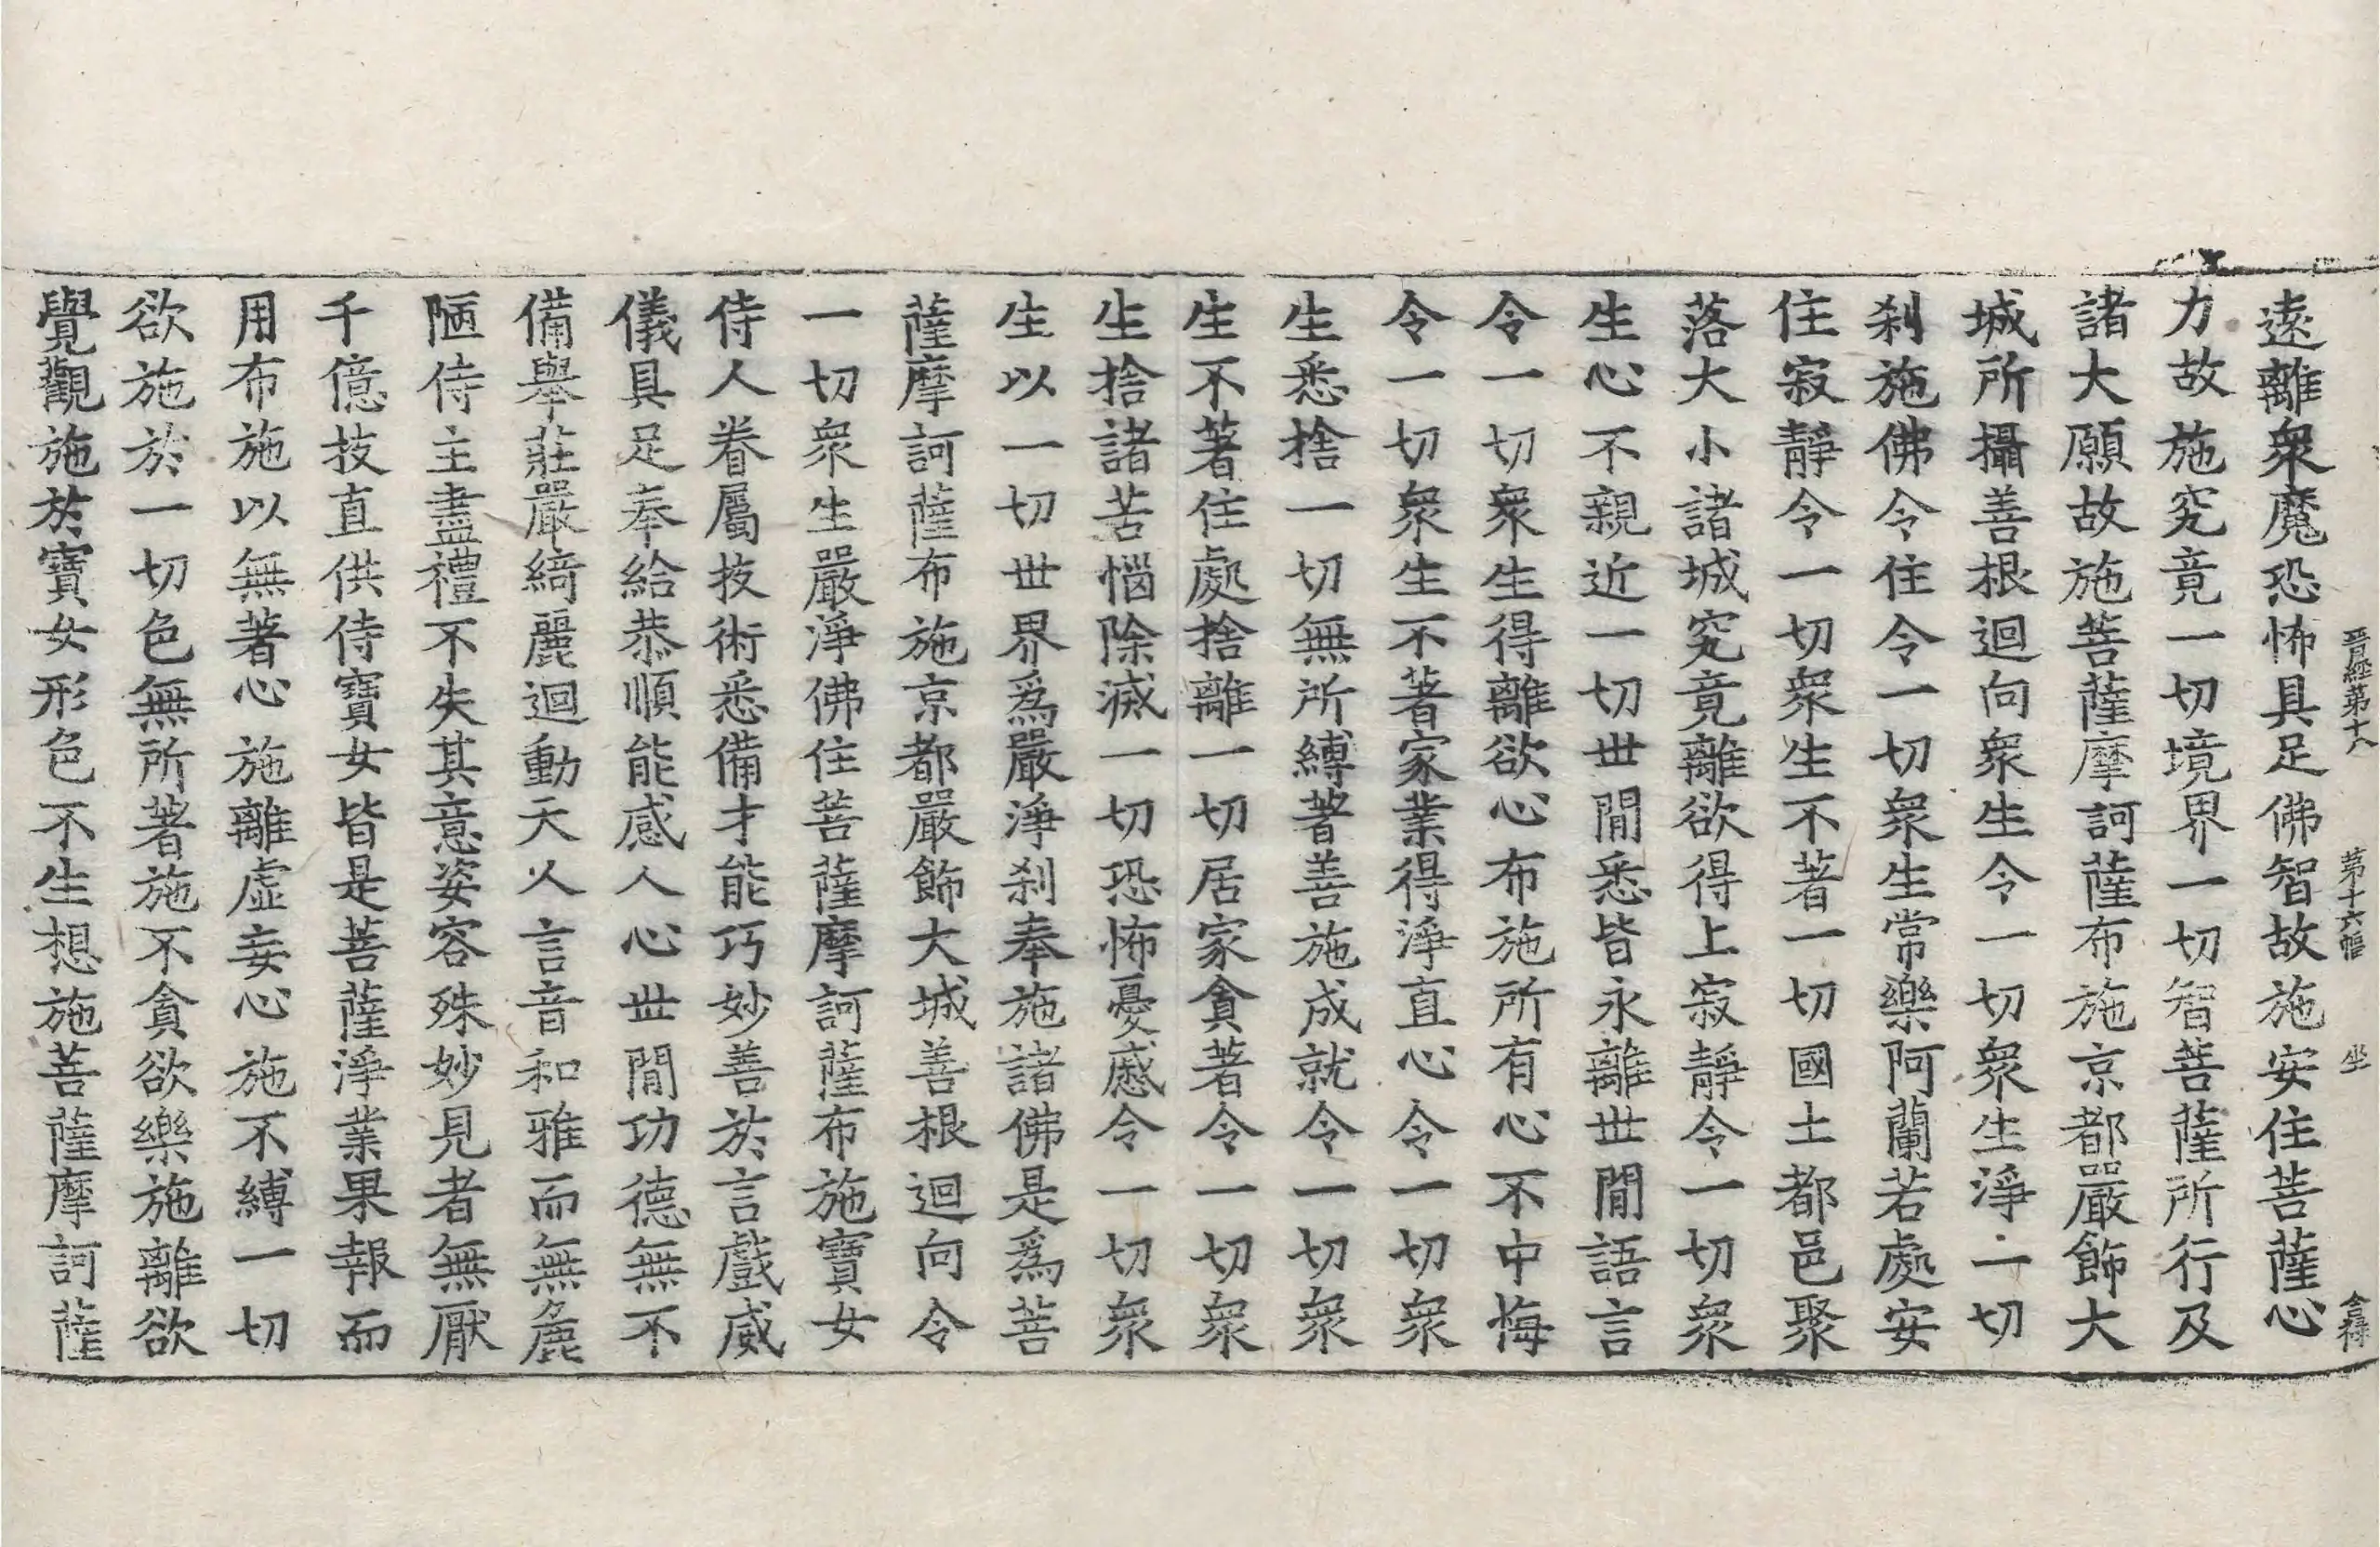 晉經第十八 第十六幅 坐 含得
遠離衆魔恐怖具足佛智故施安住菩薩心
力故施究竟一切境界一切智菩薩所行及
諸大願故施菩薩摩訶薩布施京都嚴飾大
城所攝善根迴向衆生令一切衆生淨一切
刹施佛令住令一切衆生常樂阿蘭若處安
住寂靜令一切衆生不著一切國土都邑聚
落大小諸城究竟離欲得上寂靜令一切衆
生心不親近一切世閒悉皆永離世閒語言
令一切衆生得離欲心布施所有心不中悔
令一切衆生不著家業得淨直心令一切衆
生悉捨一切無所縛著善施成就令一切衆
生不著住處捨離一切居家貪著令一切衆
生捨諸苦惱除滅一切恐怖憂慼令一切衆
生以一切世界爲嚴淨刹奉施諸佛是爲菩
薩摩訶薩布施京都嚴飾大城善根迴向令
一切衆生嚴淨佛住菩薩摩訶薩布施寶女
侍人眷屬技術悉備才能巧妙善於言戲威
儀具足奉給恭順能感人心世閒功德無不
備舉莊嚴綺麗迴動天人言音和雅而無麁
陋侍主盡禮不失其意姿容殊妙見者無厭
千億技直供侍寶女皆是菩薩淨業果報而
用布施以無著心施離虛妄心施不縛一切
欲施於一切色無所著施不貪欲樂施離欲
覺觀施於寶女形色不生想施菩薩摩訶薩